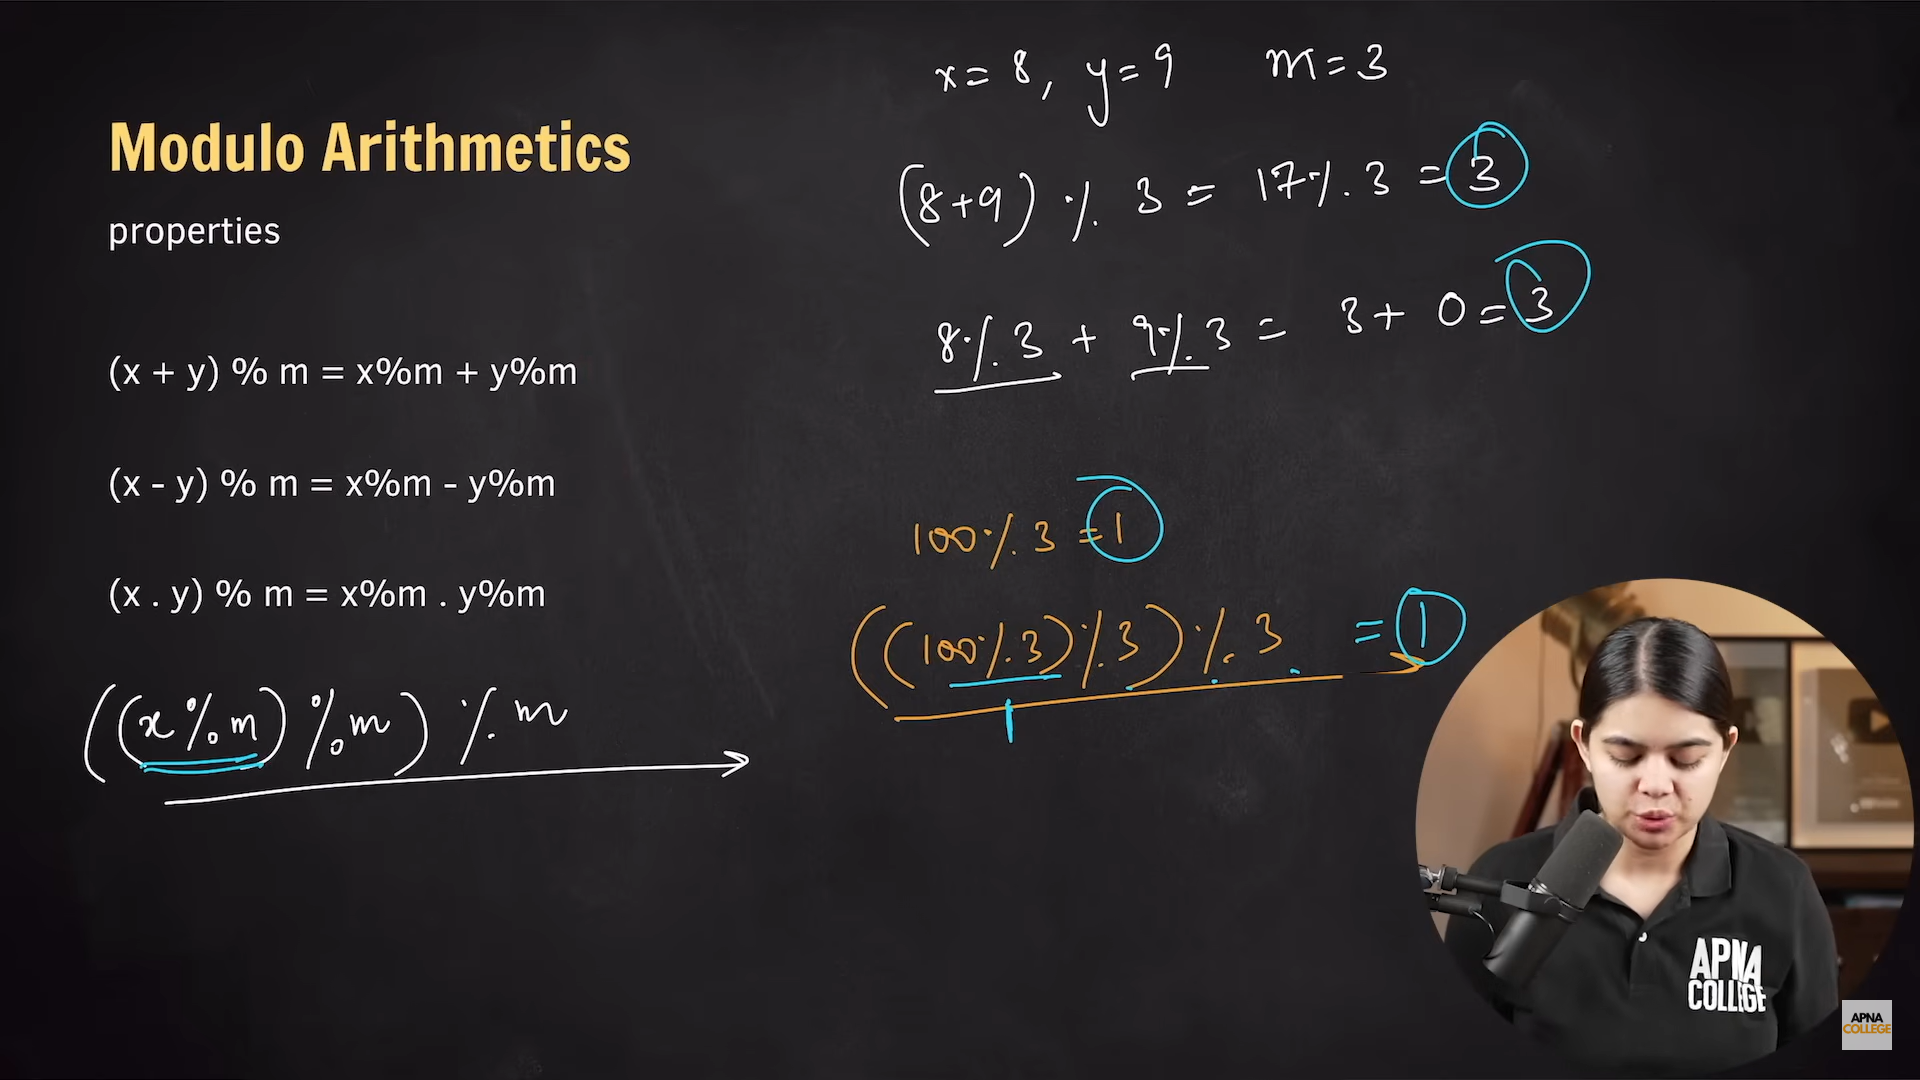 Modulo Arithmetics
properties
(x + y) % m = x%m + y%m
(x - y) % m = x%m - y%m
(x . y) % m = x%m . y%m
((x%m)%m)%m
x=8, y=9 m=3
(8+9) % 3 = 17% 3 = 3
8% 3 + 9% 3 = 3+ 0=3
100% 3 =1
((100% 3)%3)% 3 =1
1
APNA
COLLEGE
APNA
COLLEGE